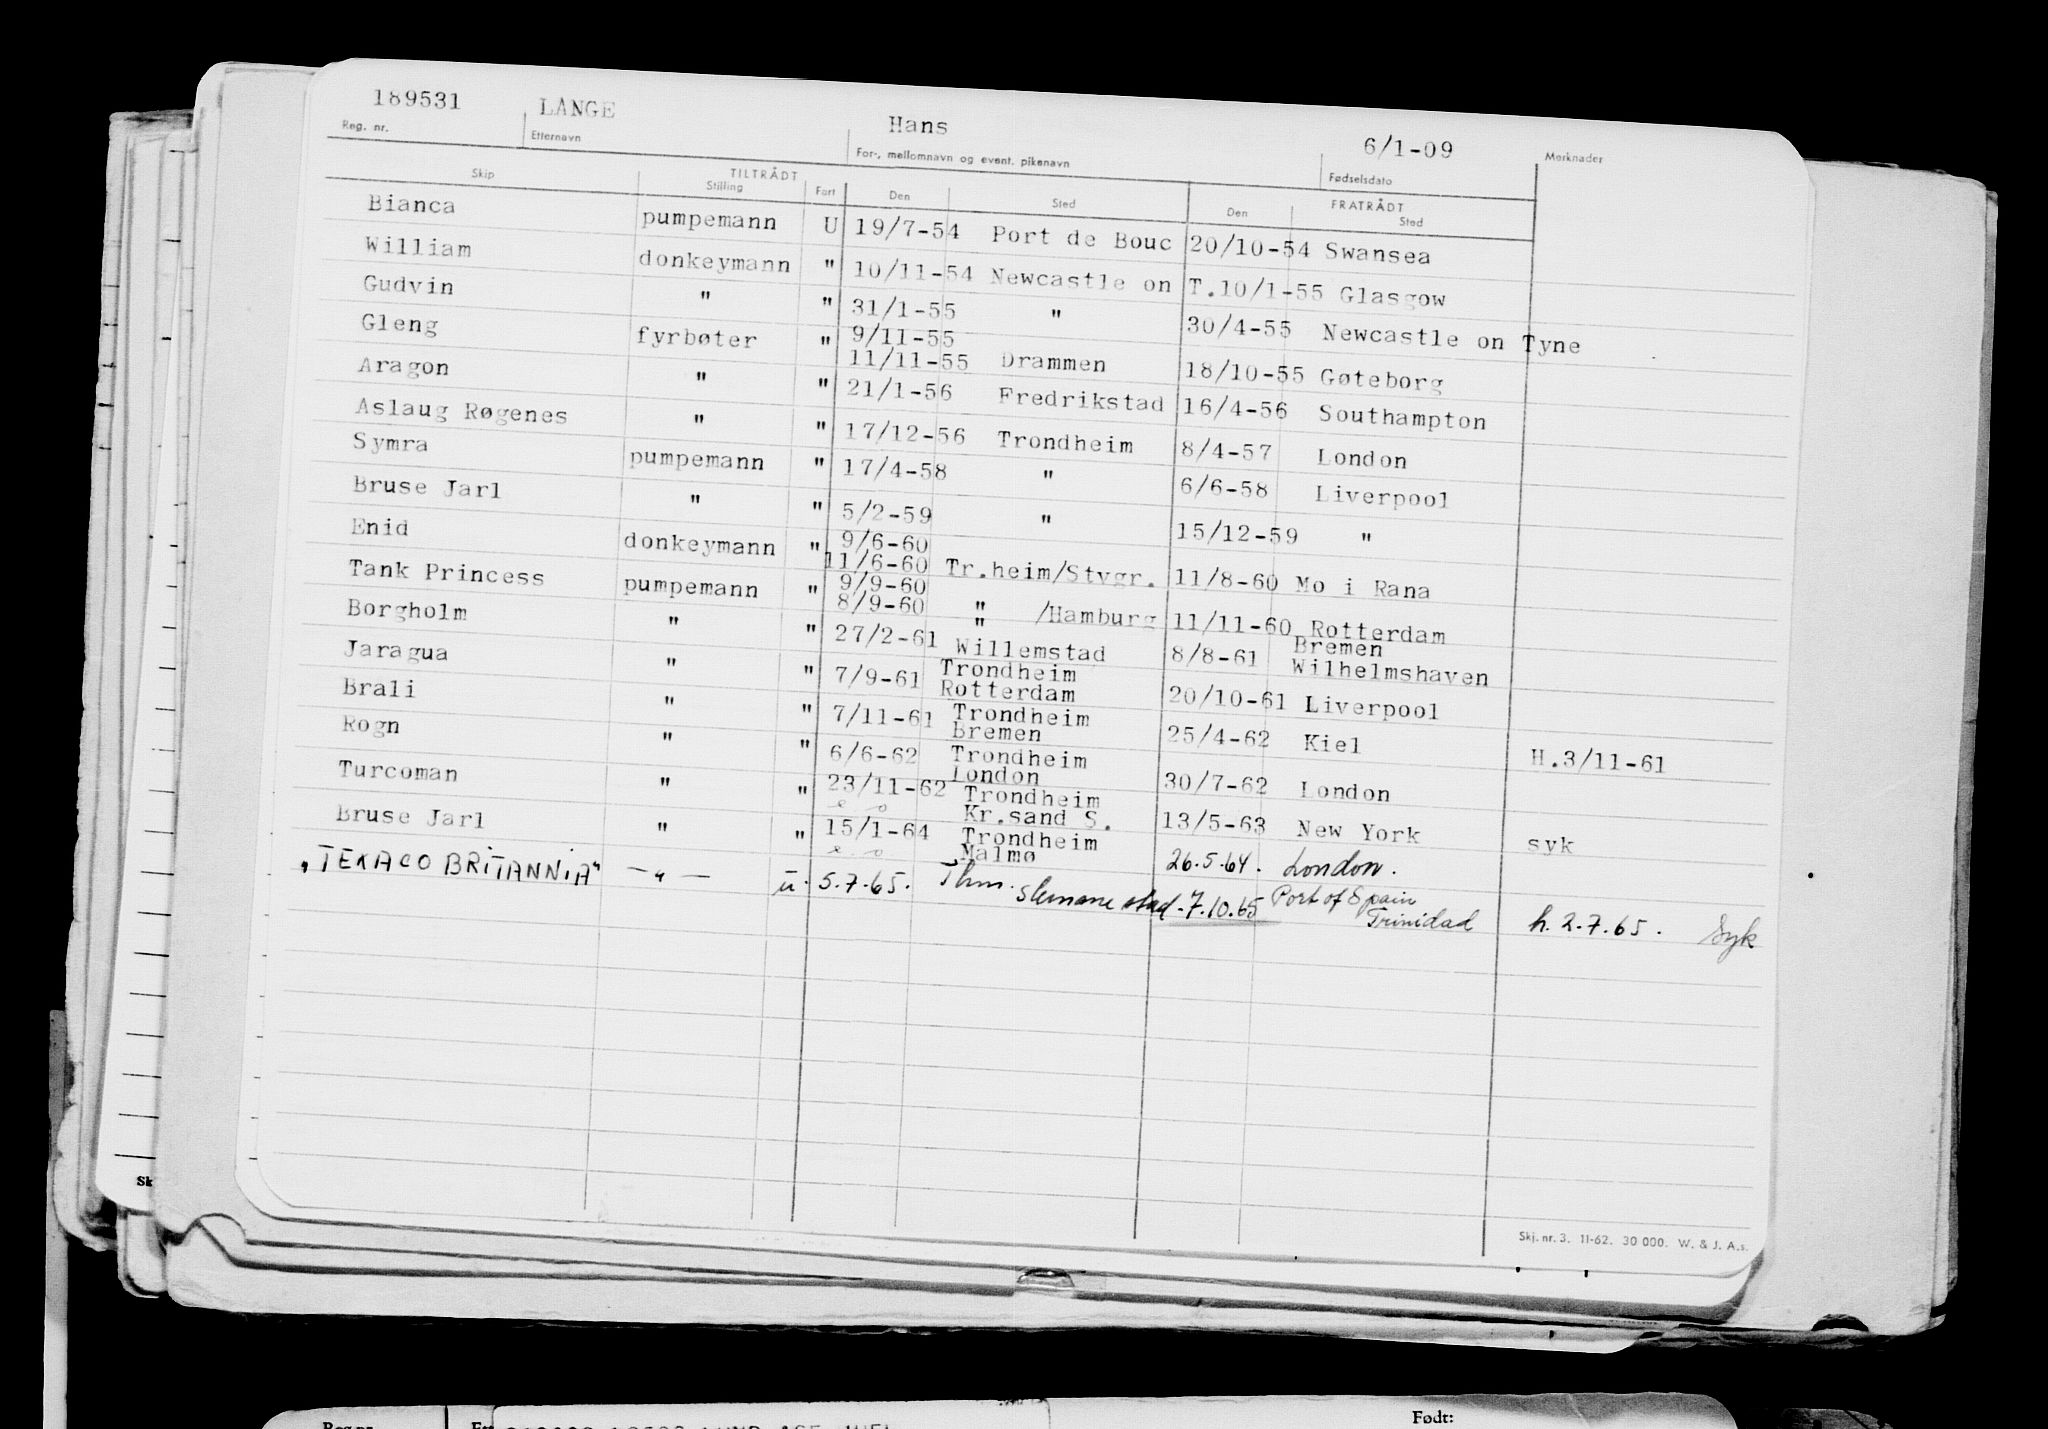 189531 LANGE Hans 6/1-09
Reg. nr. Etternavn For-, mellomnavn og event. pikenavn Fødselsdato Merknader
TILTRÅDT FRATRÅDT
Skip Stilling Fart Den Sted Den Sted
Bianca pumpemann U 19/7-54 Port de Bouc 20/10-54 Swansea
William donkeymann " 10/11-54 Newcastle on T. 10/1-55 Glasgow
Gudvin " " 31/1-55 " 30/4-55 Newcastle on Tyne
Gleng fyrbøter " 9/11-55
11/11-55 Drammen 18/10-55 Gøteborg
Aragon " " 21/1-56 Fredrikstad 16/4-56 Southampton
Aslaug Røgenes " " 17/12-56 Trondheim 8/4-57 London
Symra pumpemann " 17/4-58 " 6/6-58 Liverpool
Bruse Jarl " " 5/2-59 " 15/12-59 "
Enid donkeymann " 9/6-60
11/6-60 Tr.heim/Stvgr. 11/8-60 Mo i Rana
Tank Princess pumpemann " 9/9-60
8/9-60 " /Hamburg 11/11-60 Rotterdam
Borgholm " " 27/2-61 " Bremen
Willemstad 8/8-61 Wilhelmshaven
Jaragua " " 7/9-61 Trondheim
Rotterdam 20/10-61 Liverpool
Brali " " 7/11-61 Trondheim
Bremen 25/4-62 Kiel H.3/11-61
Rogn " " 6/6-62 Trondheim
London 30/7-62 London
Turcoman " " 23/11-62 Trondheim
Kr.sand S. 13/5-63 New York syk
Bruse Jarl " " 15/1-64 Trondheim
Malmø 26.5.64. London.
"TEXACO BRITANNIA" —"— u. 5.7.65. Thm. Port of Spain
7.10.65 Trinidad h. 2.7.65. Syk
Skj. nr. 3. 11-62. 30 000. W. & J. A.s.
Sk
Født: